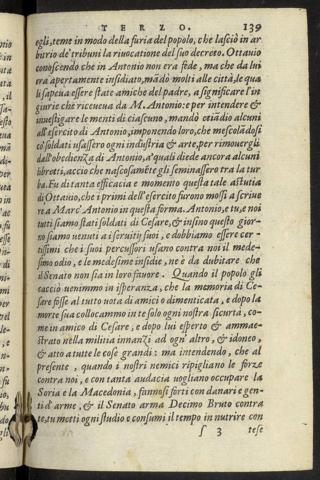 TERZO. 139
egli, teme in modo della furia del popolo, che lasciò in ar
bitrio de' tribuni la riuocatione del suo decreto. Ottauio
conoscendo che in Antonio non era fede, ma che da lui
era apertamente insidiato, mādò molti alle città, le qua
li sapeua essere state amiche del padre, a significare l'in
giurie ch'riceueua da M. Antonio: e per intendere &
inuestigare le menti di ciascuno, mandò etiādio alcuni
all'esercito di Antonio, imponendo loro, che mescolādosi
co' soldati usassero ogni industria & arte, per rimouergli
dall'obedienza di Antonio, a' quali diede ancora alcuni
libretti, accio che nascosamēte gli seminassero tra la tur
ba. Fu di tanta efficacia e momento questa tale astutia
di Ottauio, che i primi dell'esercito furono mossi a scriue
re a Marc' Antonio in questa forma. Antonio, e tu, e noi
tutti siamo stati soldati di Cesare, & insino questo gior-
no siamo uenuti a seruitij suoi, e dobbiamo essere cer-
tissimi che i suoi percussori usano contra noi il mede-
simo odio, e le medesime insidie, ne è da dubitare che
il Senato non sia in loro fauore. Quando il popolo gli
cacciò uenimmo in isperanza, che la memoria di Ce-
sare fosse al tutto uota di amici o dimenticata, e dopo la
morte sua collocammo in te solo ogni nostra sicurtà, co-
me in amico di Cesare, e dopo lui esperto & ammae-
strato nella militia innanzi ad ogn' altro, & idoneo,
& atto a tutte le cose grandi: ma intendendo, che al
presente, quando i nostri nemici ripigliano le forze
contra noi, e con tanta audacia uogliano occupare la
Soria e la Macedonia, fannosi forti con danari e gen-
ti d'arme, & il Senato arma Decimo Bruto contra
te, tu metti ogni studio e consumi il tempo in nutrire con
ſ 3 tese